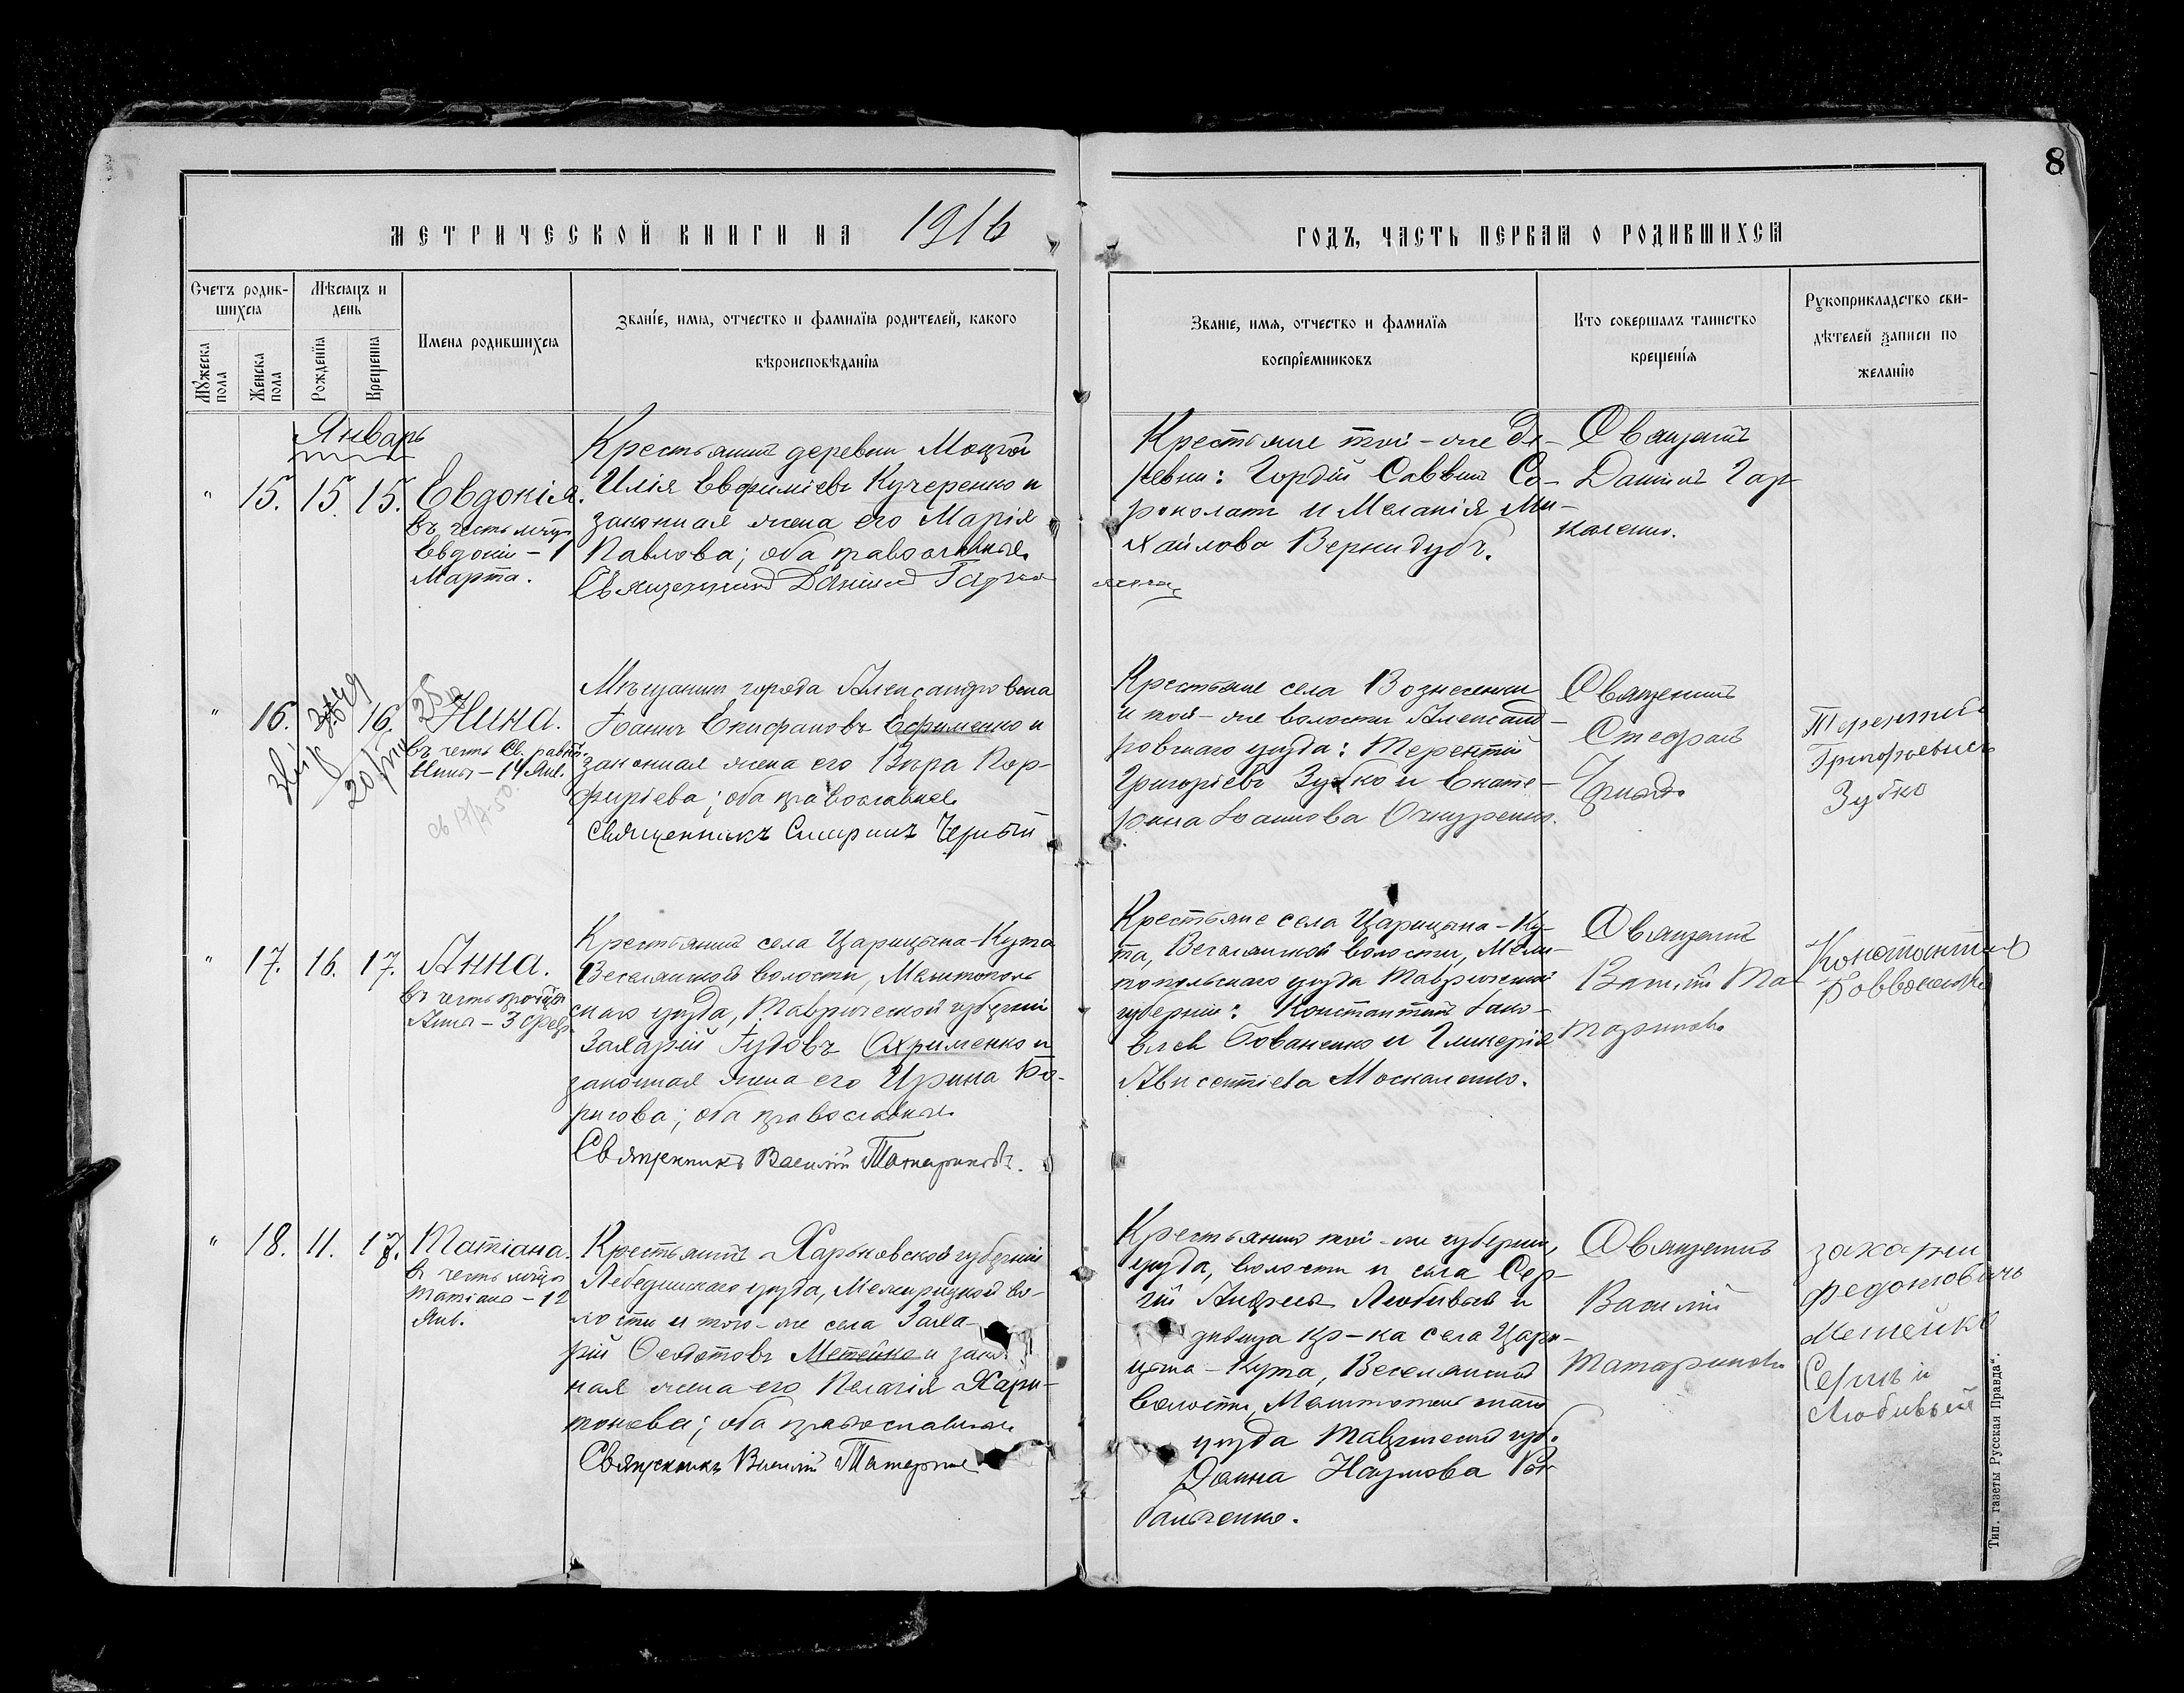 8
МЕТРИЧЕСКОЙ КНИГИ НА 1916
ГОДЪ, ЧАСТЬ ПЕРВАЯ О РОДИВШИХСЯ
Счетъ родив-
шихся
Мѣсяцъ и
день
Мужеска
пола
Женска
пола
Рожденія
Крещенія
Имена родившихся
Званіе, имя, отчество и фамилія родителей, какого
вѣроисповѣданія
Званіе, имя, отчество и фамилія
воспріемниковъ
Кто совершалъ таинство
крещенія
Рукоприкладство сви-
дѣтелей записи по
желанію
Январь
" 15. 15. 15. Евдокія.
въ честь мчц.
Евдокіи - 1
Марта.
Крестьянинъ деревни Мокрой
Илія Евфиміевъ Кучеренко и
законная жена его Марія
Павлова; оба православные
Священникъ Даніилъ Гар
Крестьяне той-же де-
ревни: Гордій Саввинъ Со-
роколатъ и Меланія Ми-
хайлова Вернидубъ.
Священникъ
Даніилъ Гар-
каленко.
" 16. 16. Нина.
въ честь Св. равн.
Нины - 14 Янв.
Мѣщанинъ города Александровска
Іоаннъ Епифановъ Ефименко и
законная жена его Вѣра Пор-
фиріева; оба православные
Священникъ Черный
Крестьяне села Вознесенки
и той-же волости Александ-
ровскаго уѣзда: Терентій
Григоріевъ Зубко и Екате-
рина Іоаннова
Священникъ
Стефанъ
Терентий
Григорьевичъ
Зубко
" 17. 16. 17. Анна.
въ честь
Анны - 3 февр.
Крестьянинъ села Царицына-Кута
Веселянской волости, Мелитополь
скаго уѣзда, Таврической губерніи
Захарій Охрименко и
законная жена его Ирина Бо-
рисова; оба православные
Священникъ Василій Татариновъ.
Крестьяне села Царицына-Ку-
та, Веселянской волости, Мели-
топольскаго уѣзда Таврической
губерніи: Константинъ Іако-
влев Бованенко и Гликерія
Авксентіева Москаленко.
Священникъ
Василій Та-
тариновъ
Константин
" 18. 11. 17. Татіана.
въ честь мчцы
Татіаны - 12
Янв.
Крестьянинъ Харьковской губерніи
Лебединскаго уѣзда, Межирицкой во-
лости и того-же села Заха-
рій Ѳедотовъ Метейко и закон-
ная жена его Пелагія Хари-
тонова; оба православные
Священникъ Василій
Крестьянинъ той-же губерніи,
уѣзда, волости и села Сер-
гій Андреевъ Любивый и
дѣвица кр-ка села Цари-
цына-Кута, Веселянской
волости, Мелитопольскаго
уѣзда Таврической губ.
Іоанна Наумова
Священникъ
Василій
Татариновъ
захарий
федотовичь
Метейко
Сергий
Любивый
Тип. газеты Русская Правда".